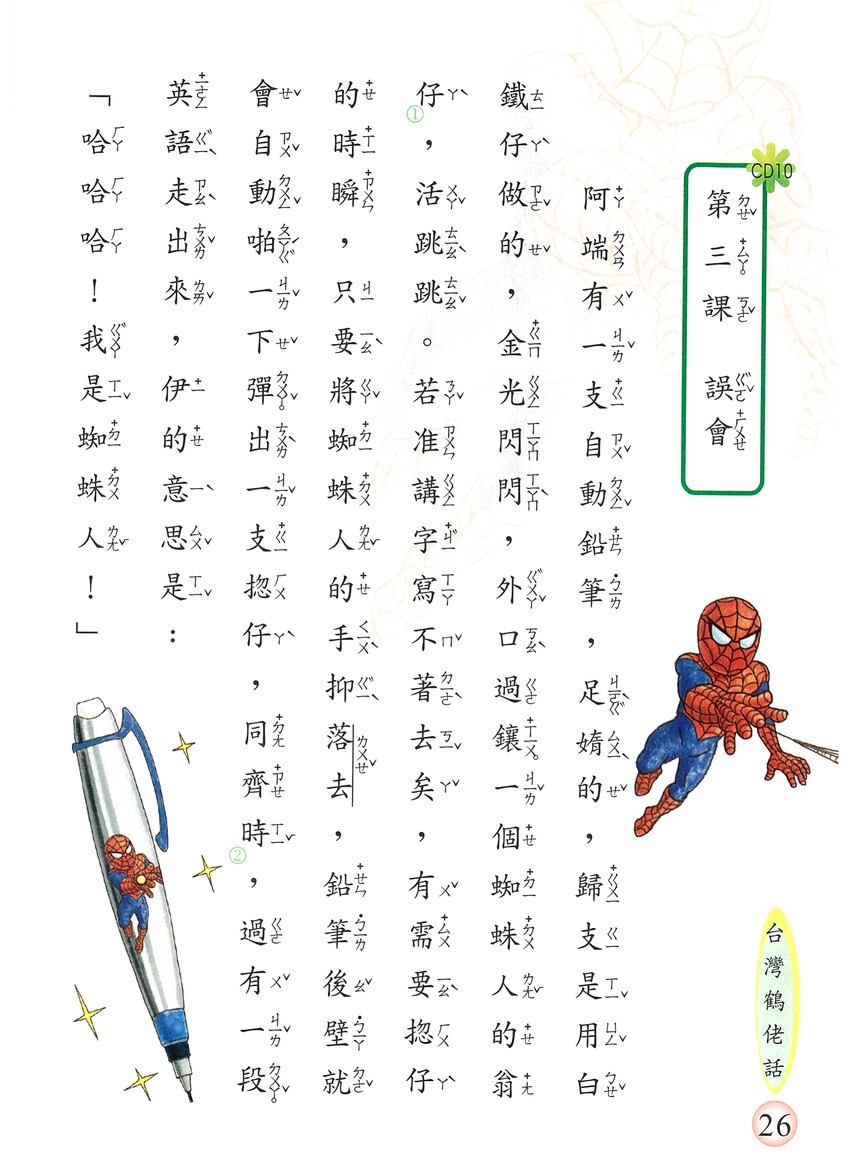 CD10
第三課 誤會
阿端有一支自動鉛筆，足媠的，歸支是用白
鐵仔做的，金光閃閃，外口過鑲一個蜘蛛人的翁
仔①，活跳跳。若准講字寫不著去矣，有需要揔仔
的時瞬，只要將蜘蛛人的手抑落去，鉛筆後壁就
會自動啪一下彈出一支揔仔，同齊時②，過有一段
英語走出來，伊的意思是：
「哈哈哈！我是蜘蛛人！」
台灣鶴佬話
26